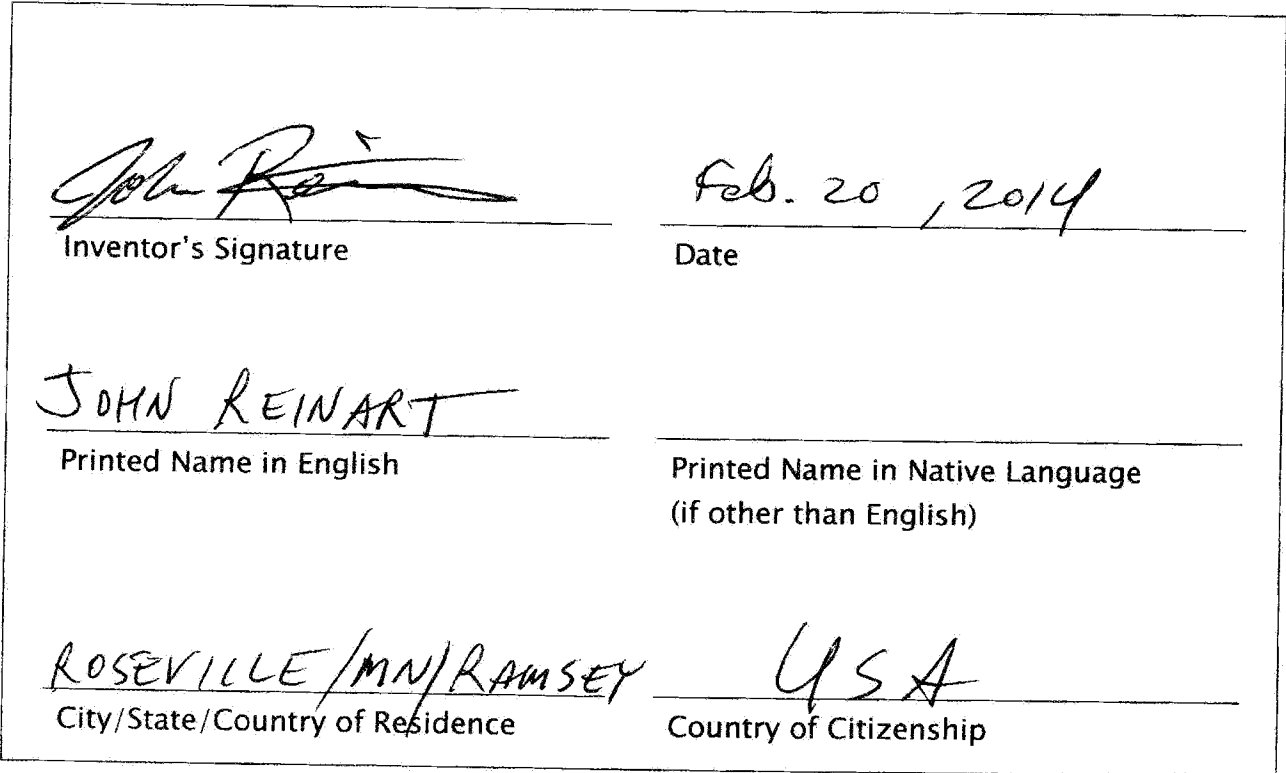 John Rein Feb. 20, 2014
Inventor's Signature Date
JOHN REINART
Printed Name in English Printed Name in Native Language
(if other than English)
ROSEVILLE/MN/RAMSEY USA
City/State/Country of Residence Country of Citizenship